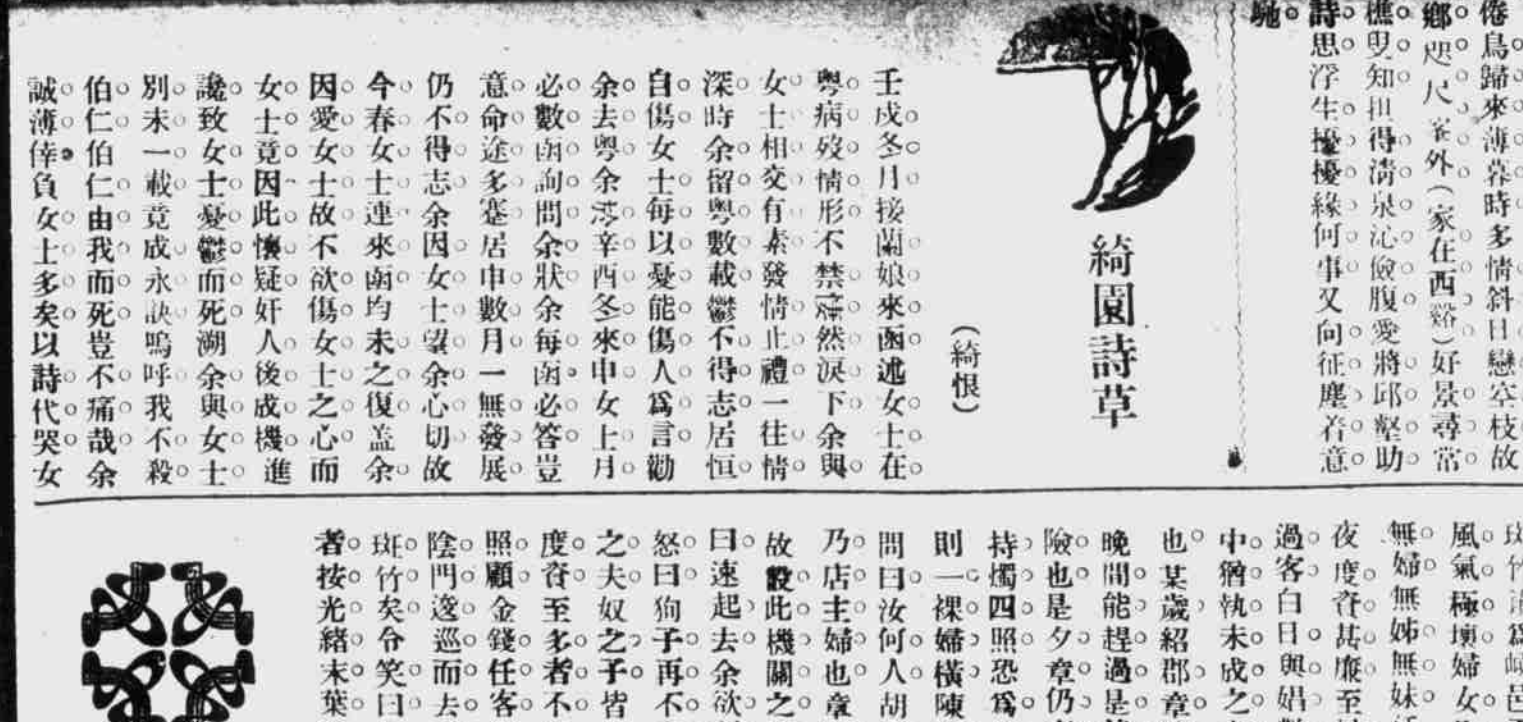 倦鳥歸來薄暮時多情斜日戀空枝故
鄉咫尺客外(家在西谿)好景尋常
樵叟知担得淸泉沁儉腹愛將邱壑助
詩思浮生擾擾緣何事又向征塵着意
馳
綺園詩草
(綺恨)
壬戌冬月接蘭娘來函述女士在
粤病歿情形不禁潸然淚下余與
女士相交有素發情止禮一往情
深時余留粤數載鬱不得志居恒
自傷女士每以憂能傷人爲言勸
余去粤余涉辛酉冬來申女士月
必數函詢問余狀余每函必答豈
意命途多蹇居申數月一無發展
仍不得志余因女士望余心切故
今春女士連來函均未之復盖余
因愛女士故不欲傷女士之心而
女士竟因此懷疑奸人後成機進
讒致女士憂鬱而死溯余與女士
別未一載竟成永訣嗚呼我不殺
伯仁伯仁由我而死豈不痛哉余
誠薄倖負女士多矣以詩代哭女
風氣極壞婦女
無婦無姊無妹
夜度資甚廉至
過客白日與娼
中猶執未成之
也某歲紹郡章
晚間能趕過是
險也是夕章仍
持燭四照恐爲
則一裸婦橫陳
問曰汝何人胡
乃店主婦也章
故設此機關之
曰速起去余欲
怒曰狗子再不
之夫奴之子皆
度資至多者不
照顧金錢任客
陰門逡巡而去
斑竹矣令笑曰
者按光緒末葉